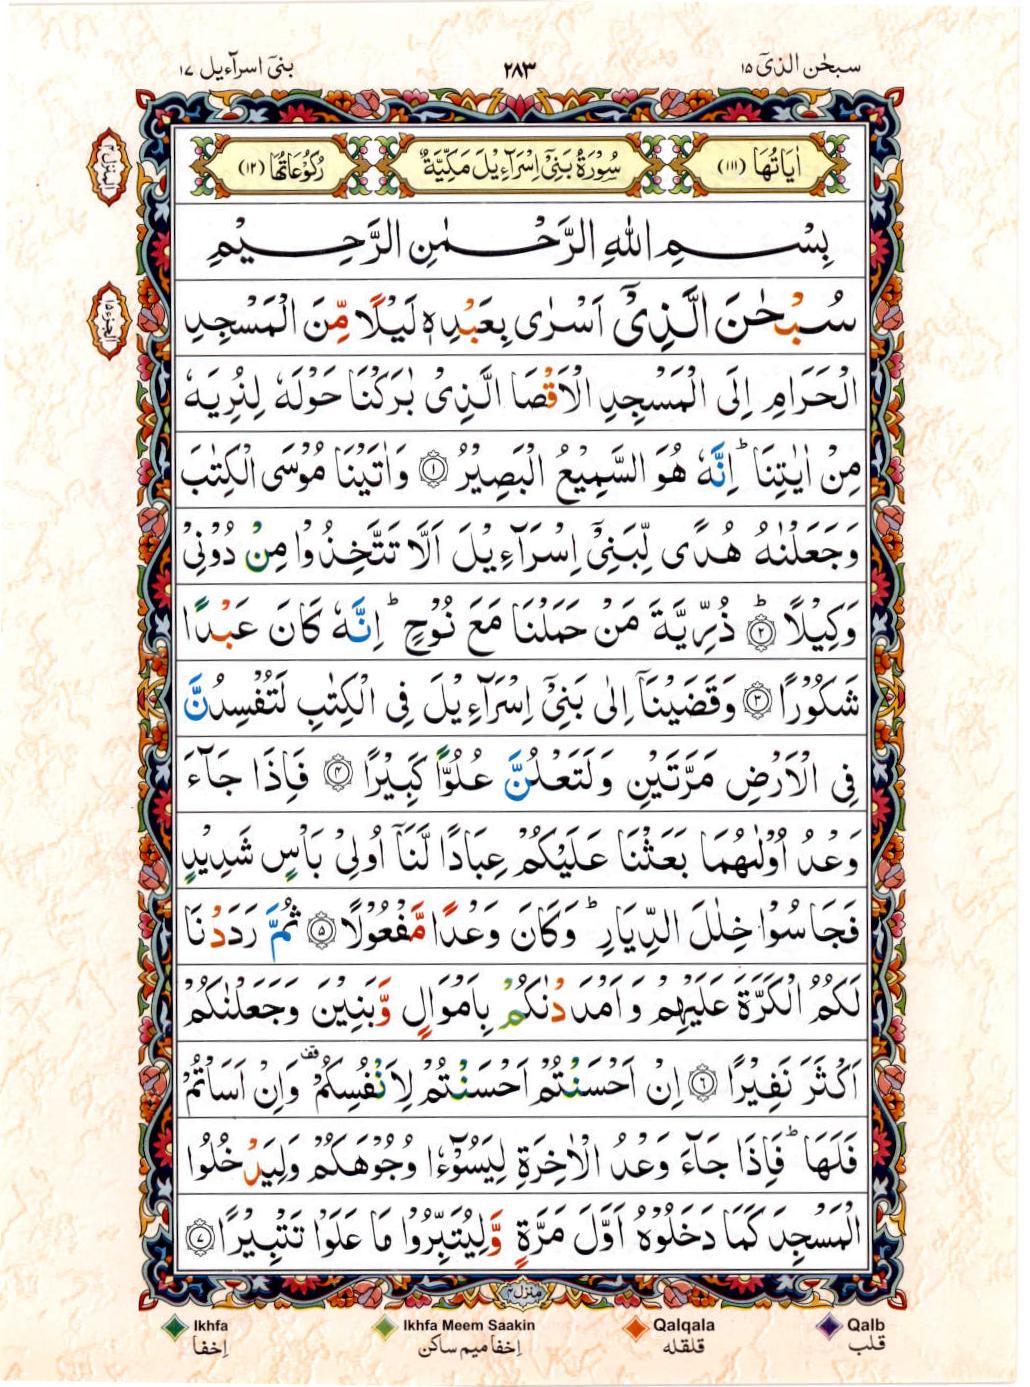 سبحٰن الذیٓ ۱۵
۲۸۳
بنیٓ اسرآءیل ۱۷
اٰيَاتُهَا (۱۱۱)
سُوْرَةُ بَنِيْٓ اِسْرَآءِيْلَ مَكِّيَّةٌ
رُكُوْعَاتُهَا (۱۲)
المنزل ۴
الجزء ۱۵
بِسْمِ اللهِ الرَّحْمٰنِ الرَّحِيْمِ
سُبْحٰنَ الَّذِيْٓ اَسْرٰى بِعَبْدِهٖ لَيْلًا مِّنَ الْمَسْجِدِ
الْحَرَامِ اِلَى الْمَسْجِدِ الْاَقْصَا الَّذِيْ بٰرَكْنَا حَوْلَهٗ لِنُرِيَهٗ
مِنْ اٰيٰتِنَا ؕ اِنَّهٗ هُوَ السَّمِيْعُ الْبَصِيْرُ ۝۱ وَاٰتَيْنَا مُوْسَى الْكِتٰبَ
وَجَعَلْنٰهُ هُدًى لِّبَنِيْٓ اِسْرَآءِيْلَ اَلَّا تَتَّخِذُوْا مِنْ دُوْنِيْ
وَكِيْلًا ؕ ۝۲ ذُرِّيَّةَ مَنْ حَمَلْنَا مَعَ نُوْحٍ ؕ اِنَّهٗ كَانَ عَبْدًا
شَكُوْرًا ۝۳ وَقَضَيْنَآ اِلٰى بَنِيْٓ اِسْرَآءِيْلَ فِي الْكِتٰبِ لَتُفْسِدُنَّ
فِي الْاَرْضِ مَرَّتَيْنِ وَلَتَعْلُنَّ عُلُوًّا كَبِيْرًا ۝۴ فَاِذَا جَآءَ
وَعْدُ اُوْلٰىهُمَا بَعَثْنَا عَلَيْكُمْ عِبَادًا لَّنَآ اُولِيْ بَاْسٍ شَدِيْدٍ
فَجَاسُوْا خِلٰلَ الدِّيَارِ ؕ وَكَانَ وَعْدًا مَّفْعُوْلًا ۝۵ ثُمَّ رَدَدْنَا
لَكُمُ الْكَرَّةَ عَلَيْهِمْ وَاَمْدَدْنٰكُمْ بِاَمْوَالٍ وَّبَنِيْنَ وَجَعَلْنٰكُمْ
اَكْثَرَ نَفِيْرًا ۝۶ اِنْ اَحْسَنْتُمْ اَحْسَنْتُمْ لِاَنْفُسِكُمْ قف وَاِنْ اَسَاْتُمْ
فَلَهَا ؕ فَاِذَا جَآءَ وَعْدُ الْاٰخِرَةِ لِيَسُوْٓءٗا وُجُوْهَكُمْ وَلِيَدْخُلُوا
الْمَسْجِدَ كَمَا دَخَلُوْهُ اَوَّلَ مَرَّةٍ وَّلِيُتَبِّرُوْا مَا عَلَوْا تَتْبِيْرًا ۝۷
منزل ۴
Ikhfa
اِخفا
Ikhfa Meem Saakin
اِخفا میم ساکن
Qalqala
قلقله
Qalb
قلب